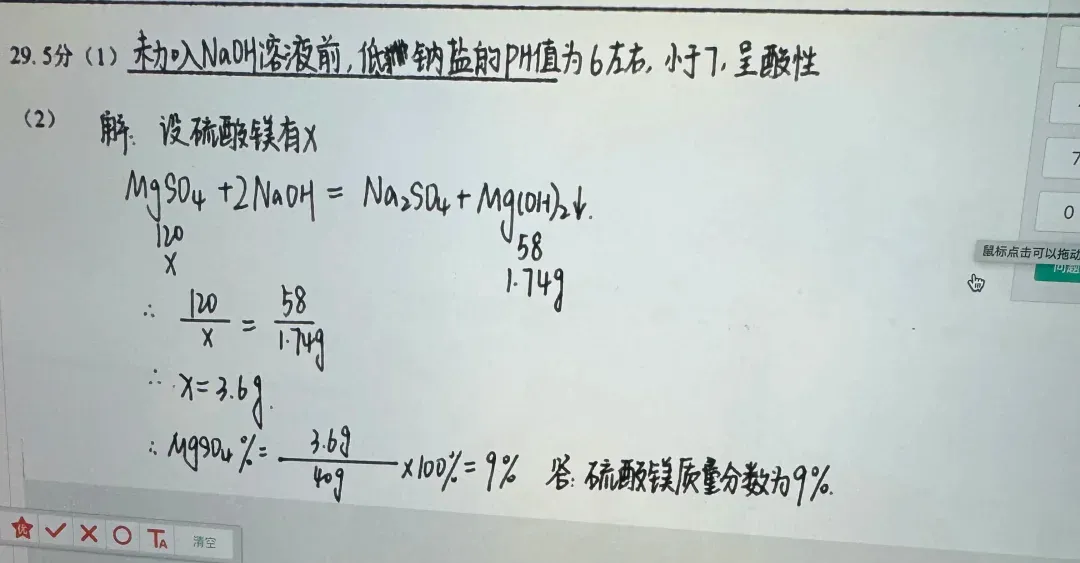 29.5分(1)未加入NaOH溶液前,低钠盐的PH值为6左右,小于7,呈酸性
(2) 解:设硫酸镁有X
MgSO₄+2NaOH=Na₂SO₄+Mg(OH)₂↓.
120 58
X 1.74g
∴ 120/X = 58/1.74g
∴ X=3.6g.
∴ MgSO₄%= 3.6g/40g ×100%=9% 答:硫酸镁质量分数为9%.
7
0
鼠标点击可以拖动
问题
优 TA 清空